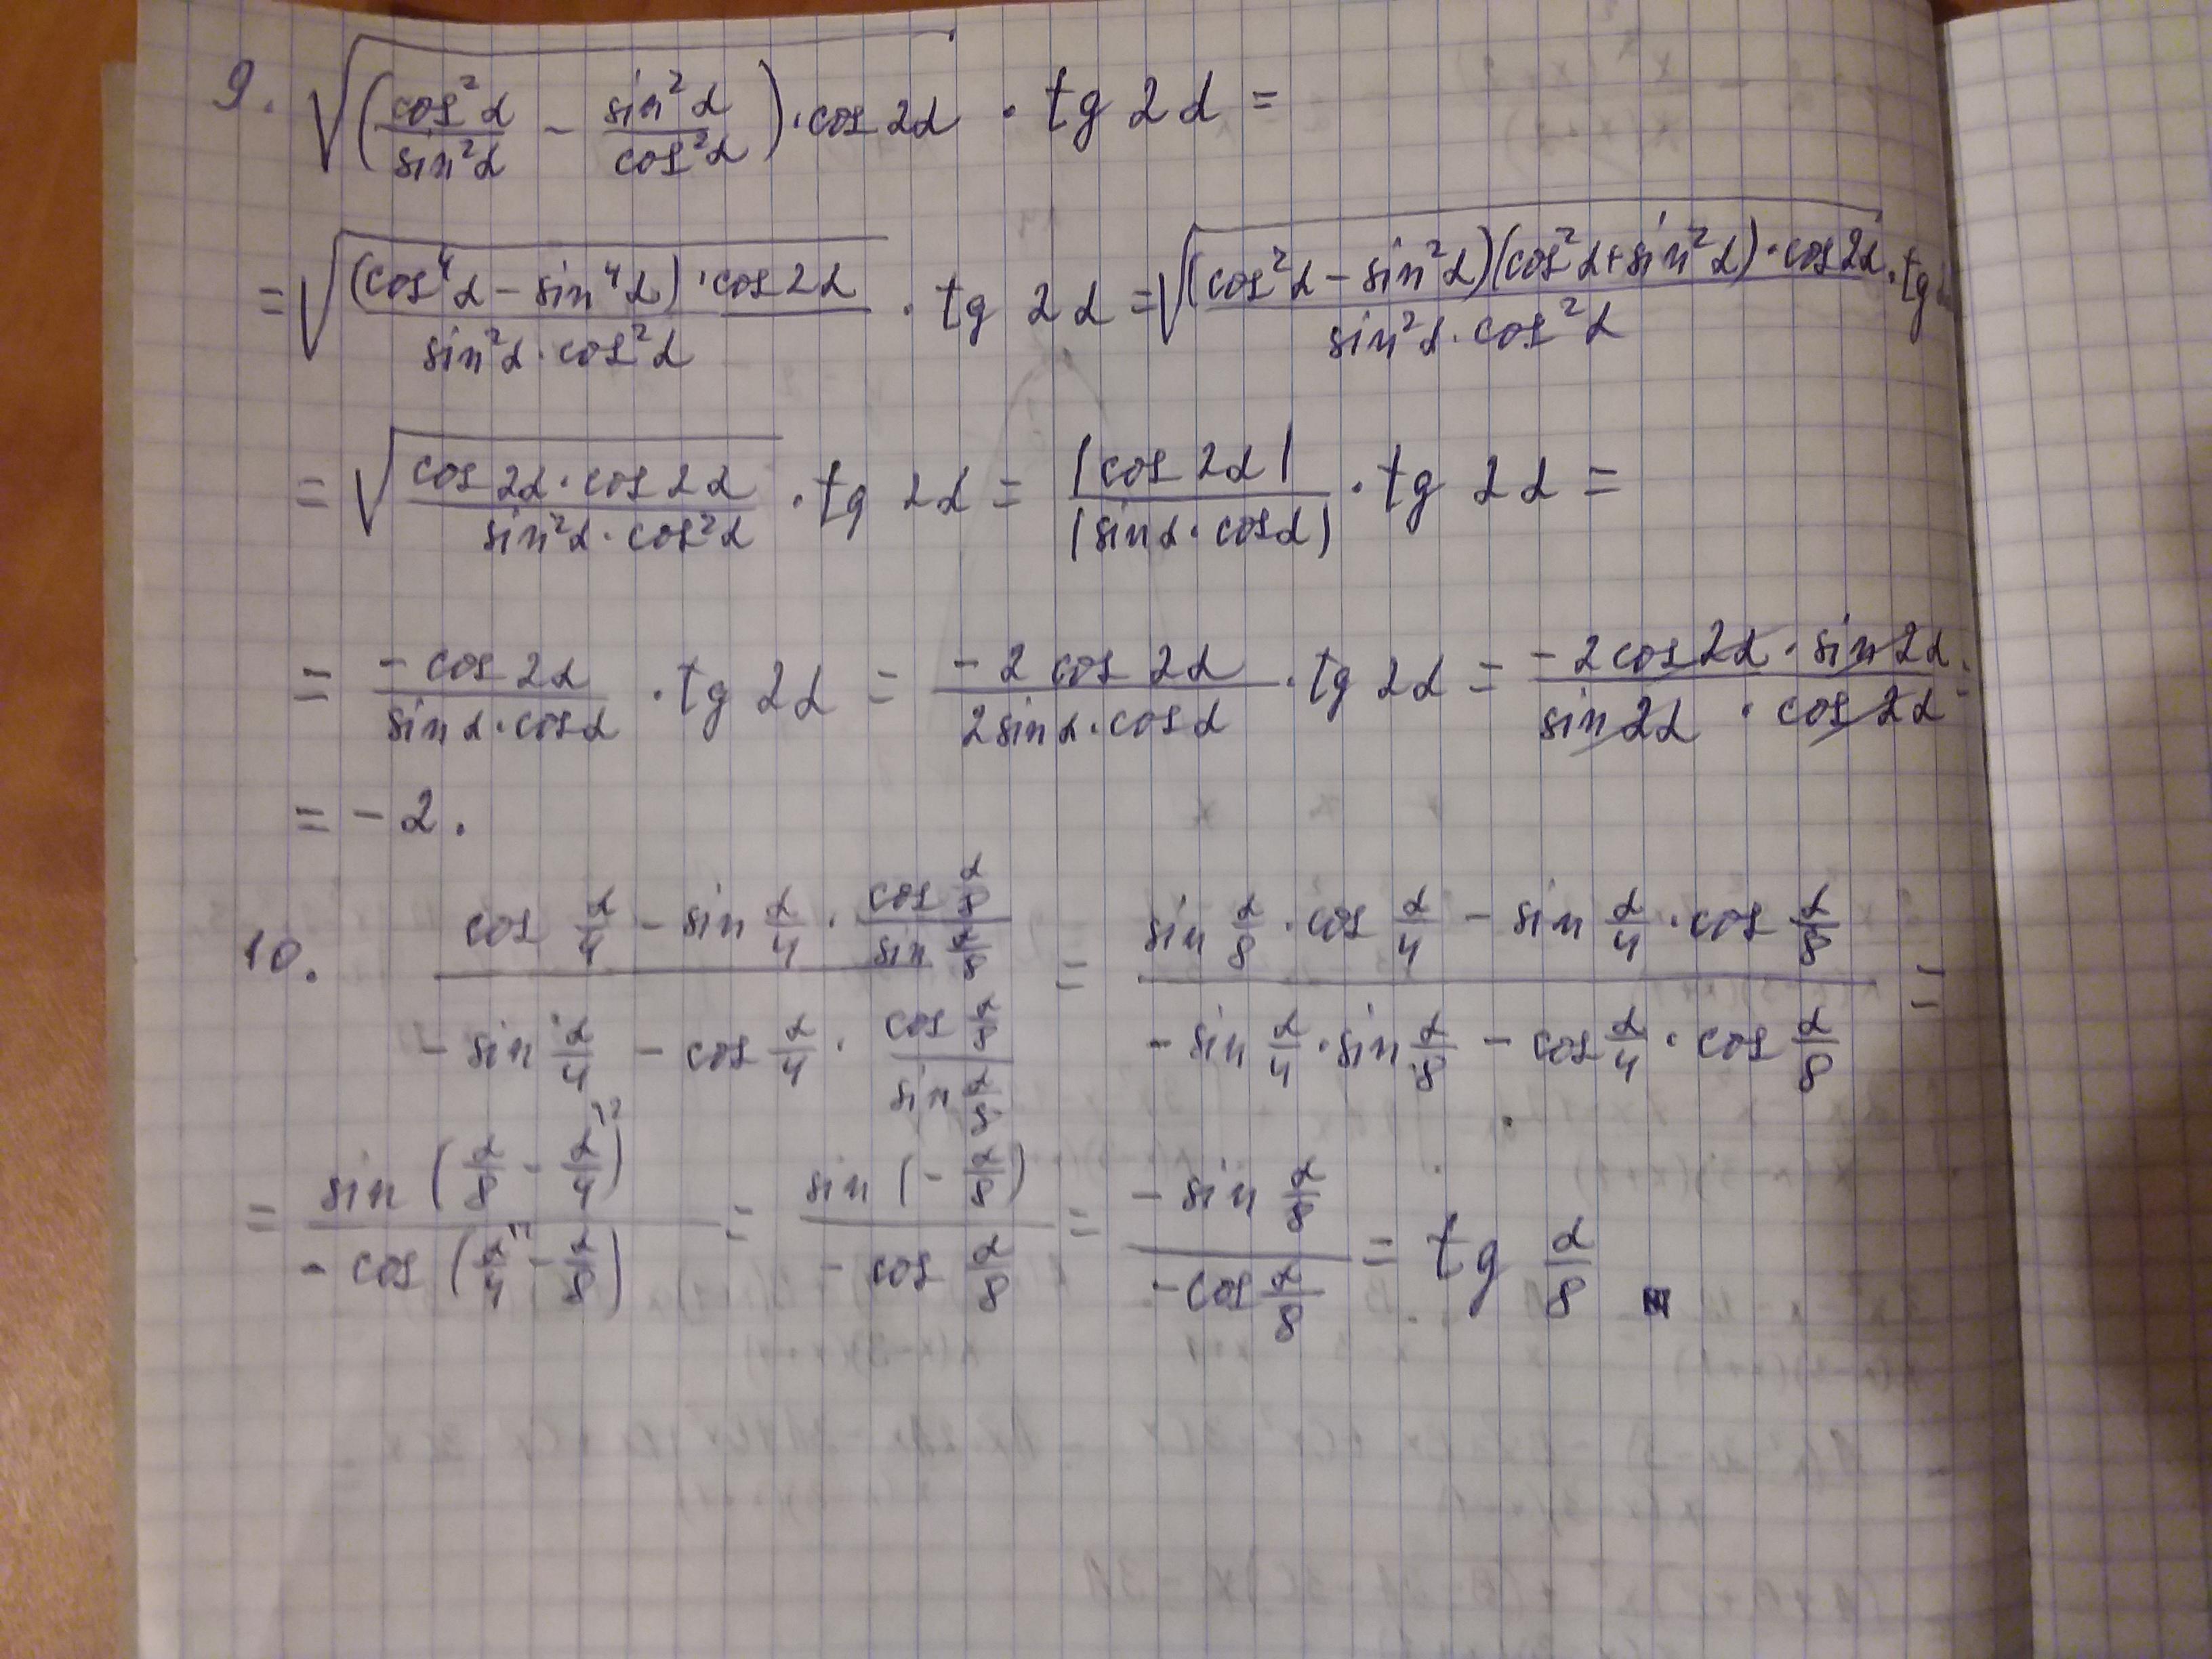 9. √((cos²α/sin²α − sin²α/cos²α)·cos 2α) · tg 2α =
= √((cos⁴α − sin⁴α)·cos 2α / (sin²α·cos²α)) · tg 2α = √((cos²α − sin²α)(cos²α + sin²α)·cos 2α / (sin²α·cos²α)) · tg
= √(cos 2α·cos 2α / (sin²α·cos²α)) · tg 2α = |cos 2α| / |sin α·cos α| · tg 2α =
= −cos 2α / (sin α·cos α) · tg 2α = −2 cos 2α / (2 sin α·cos α) · tg 2α = −2 cos 2α · sin 2α / (sin 2α · cos 2α) =
= −2.
10. (cos α/4 − sin α/4 · (cos α/8 / sin α/8)) / (−sin α/4 − cos α/4 · (cos α/8 / sin α/8)) = (sin α/8 · cos α/4 − sin α/4 · cos α/8) / (−sin α/4 · sin α/8 − cos α/4 · cos α/8) =
= sin(α/8 − α/4^{12}) / (−cos(α/4^{12} − α/8)) = sin(−α/8) / (−cos α/8) = −sin α/8 / (−cos α/8) = tg α/8